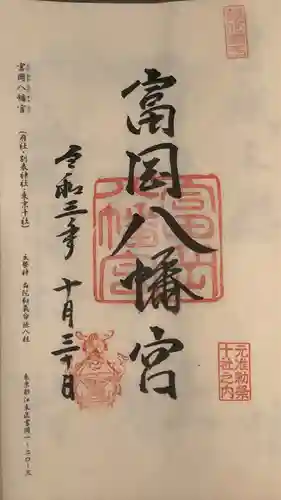 富岡八幡宮
元准勅祭
十社之内
令和三年 十月三十日
富岡八幡宮
(府社・別表神社・東京十社)
東京都江東区富岡一-二〇-三